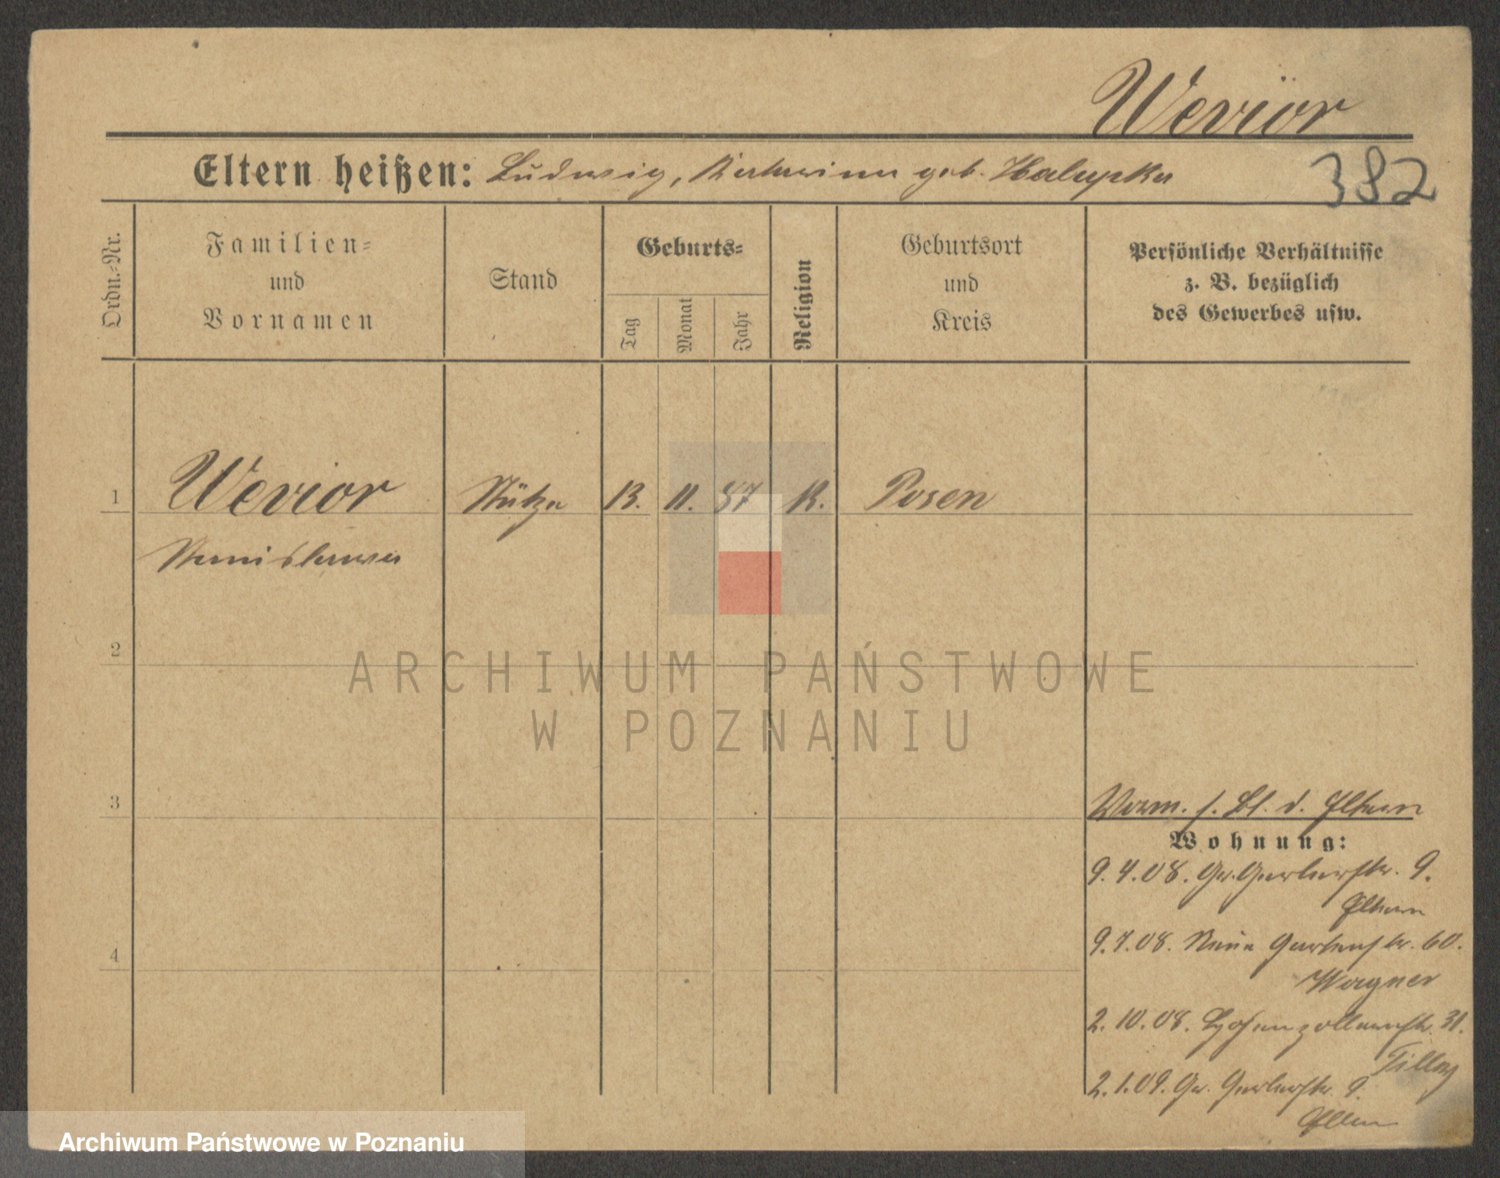 Wevior
Eltern heißen: Ludwig, Katharina geb. Halupka
382
Ordn.-Nr.
Familien-
und
Vornamen
Stand
Geburts-
Tag
Monat
Jahr
Religion
Geburtsort
und
Kreis
Persönliche Verhältnisse
z. B. bezüglich
des Gewerbes usw.
1
Wevior
Stütze
13.
11.
87
K.
Posen
Stanislawa
2
ARCHIWUM PAŃSTWOWE
W POZNANIU
3
Verm. s. Bl. d. Eltern
Wohnung:
9.4.08. Gr. Gerberstr. 9.
Eltern
4
9.7.08. Neue Gartenstr. 60.
Wagner
2.10.08. Hohenzollernstr. 31.
2.1.09. Gr. Gerberstr. 9.
Eltern
Archiwum Państwowe w Poznaniu